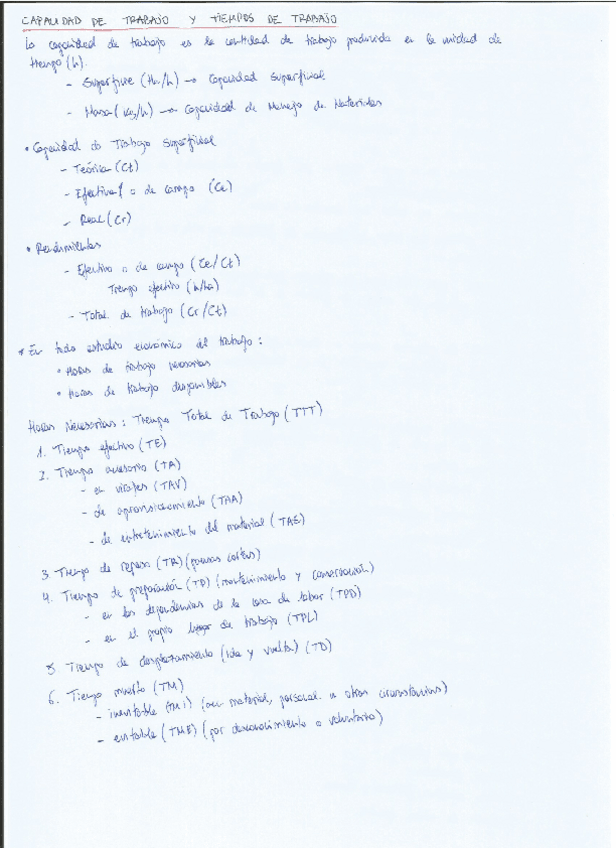 CAPACIDAD DE TRABAJO Y TIEMPOS DE TRABAJO
La capacidad de trabajo es la cantidad de trabajo producida en la unidad de
tiempo (h).
- Superficie (Ha/h) → Capacidad Superficial
- Masa (Kg/h) → Capacidad de Manejo de Materiales
• Capacidad de Trabajo Superficial
- Teórica (Ct)
- Efectiva o de campo (Ce)
- Real (Cr)
• Rendimientos
- Efectivo o de campo (Ce/Ct)
Tiempo efectivo (h/ha)
- Total de trabajo (Cr/Ct)
* En todo estudio económico del trabajo:
• Horas de trabajo necesarias
• Horas de trabajo disponibles
Horas Necesarias: Tiempo Total de Trabajo (TTT)
1. Tiempo efectivo (TE)
2. Tiempo accesorio (TA)
- en virajes (TAV)
- de aprovisionamiento (TAA)
- de entretenimiento del material (TAE)
3. Tiempo de reposo (TR) (pausas cortas)
4. Tiempo de preparación (TP) (mantenimiento y conservación)
- en las dependencias de la casa de labor (TPD)
- en el propio lugar de trabajo (TPL)
5. Tiempo de desplazamiento (ida y vuelta) (TD)
6. Tiempo muerto (TM)
- inevitable (TMI) ( material, personal u otras circunstancias)
- evitable (TME) (por desconocimiento o voluntario)